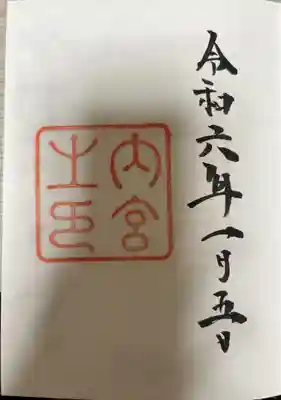 令和六年一月五日
内宮
之印